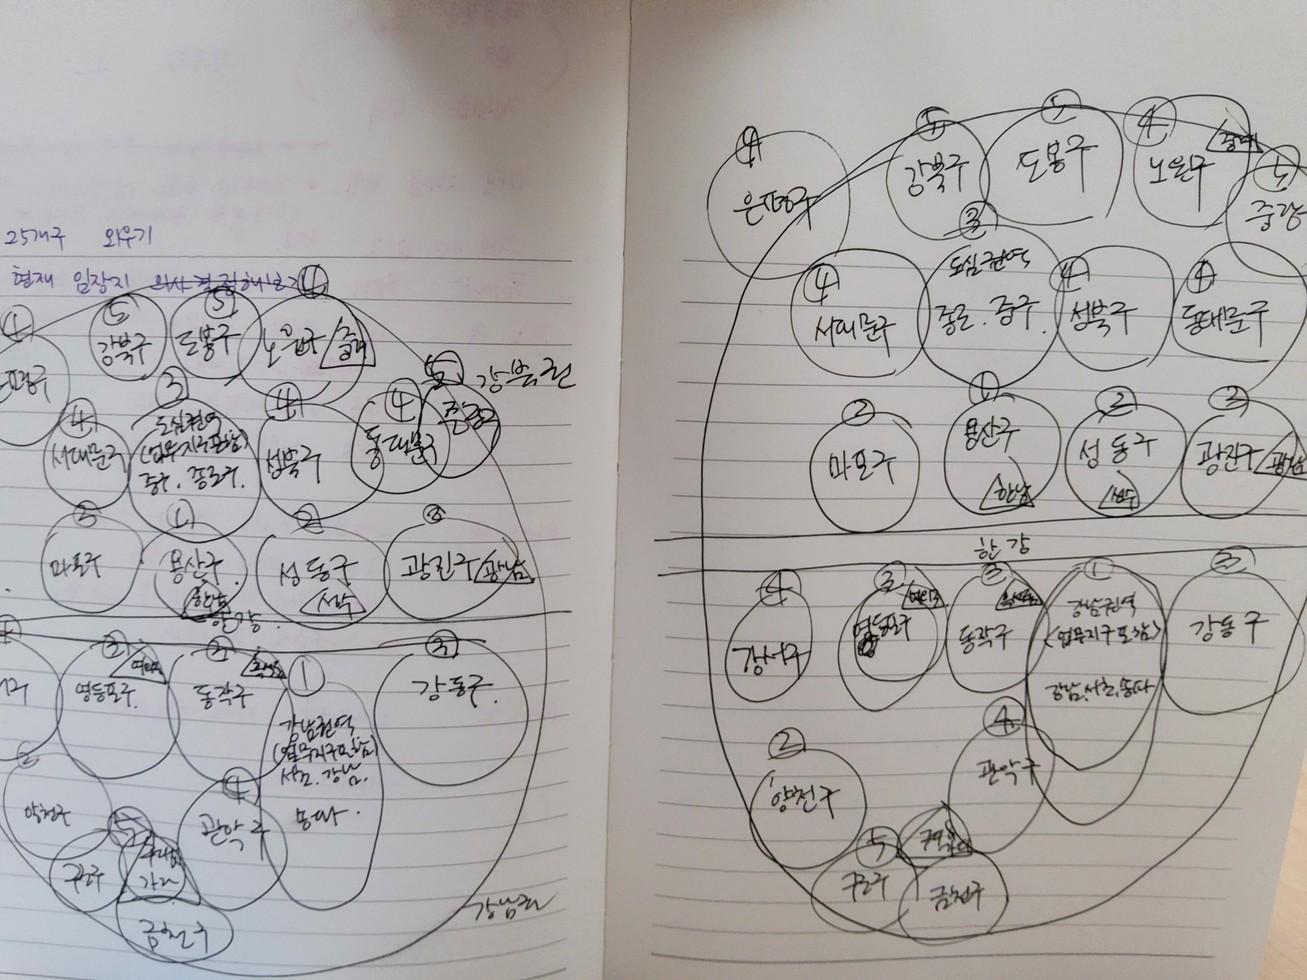 25개구 외우기
현재 임장지
④
⑤
강북구
⑤
도봉구
④
노원구
중계
⑤
강북권
④
서대문구
③
도심권역
(업무지구포함)
중구. 종로구.
④
성북구
④
동대문구
마포구
①
용산구
한남
②
성동구
성수
광진구
광남
한강
영등포구
동작구
①
강남권역
(업무지구포함)
서초. 강남.
송파.
③
강동구.
양천구
④
관악구
⑤
구로구
금천구
강남권
④
은평구
⑤
강북구
⑤
도봉구
④
노원구
중계
중랑
④
서대문구
③
도심권역
종로. 중구.
④
성북구
④
동대문구
②
마포구
①
용산구
한남
②
성동구
성수
③
광진구
광남
한강
④
강서구
영등포구
여의도
③
동작구
①
강남권역
<업무지구포함>
강남,서초,송파
③
강동구
②
양천구
④
관악구
⑤
구로구
금천구